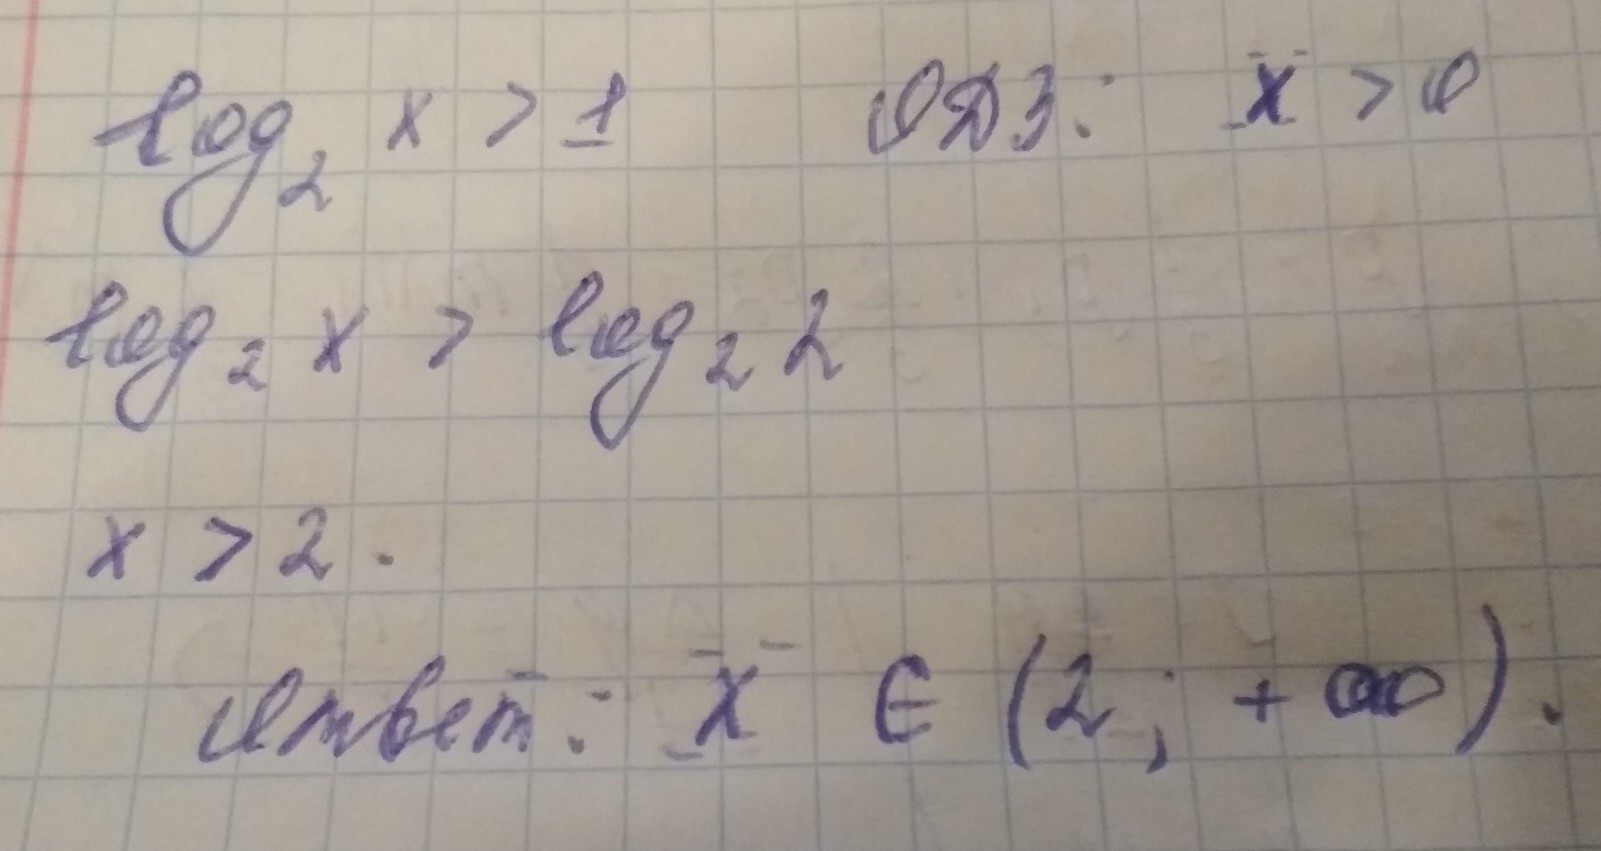 log₂ x > 1 ОДЗ: x > 0
log₂ x > log₂ 2
x > 2.
Ответ: x ∈ (2; +∞).